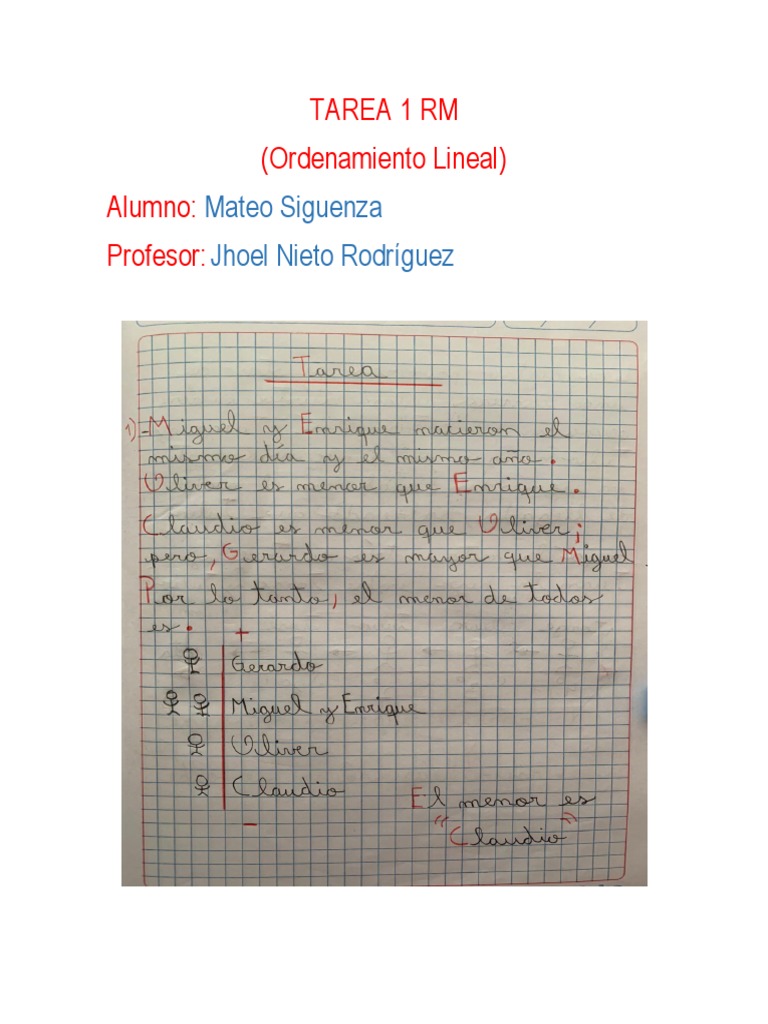 TAREA 1 RM
(Ordenamiento Lineal)
Alumno: Mateo Siguenza
Profesor: Jhoel Nieto Rodríguez
Tarea
1)-Miguel y Enrique nacieron el
mismo día y el mismo año.
Oliver es menor que Enrique.
Claudio es menor que Oliver;
pero, Gerardo es mayor que Miguel
Por lo tanto, el menor de todos
es.
+
Gerardo
Miguel y Enrique
Oliver
Claudio
-
El menor es
"Claudio"